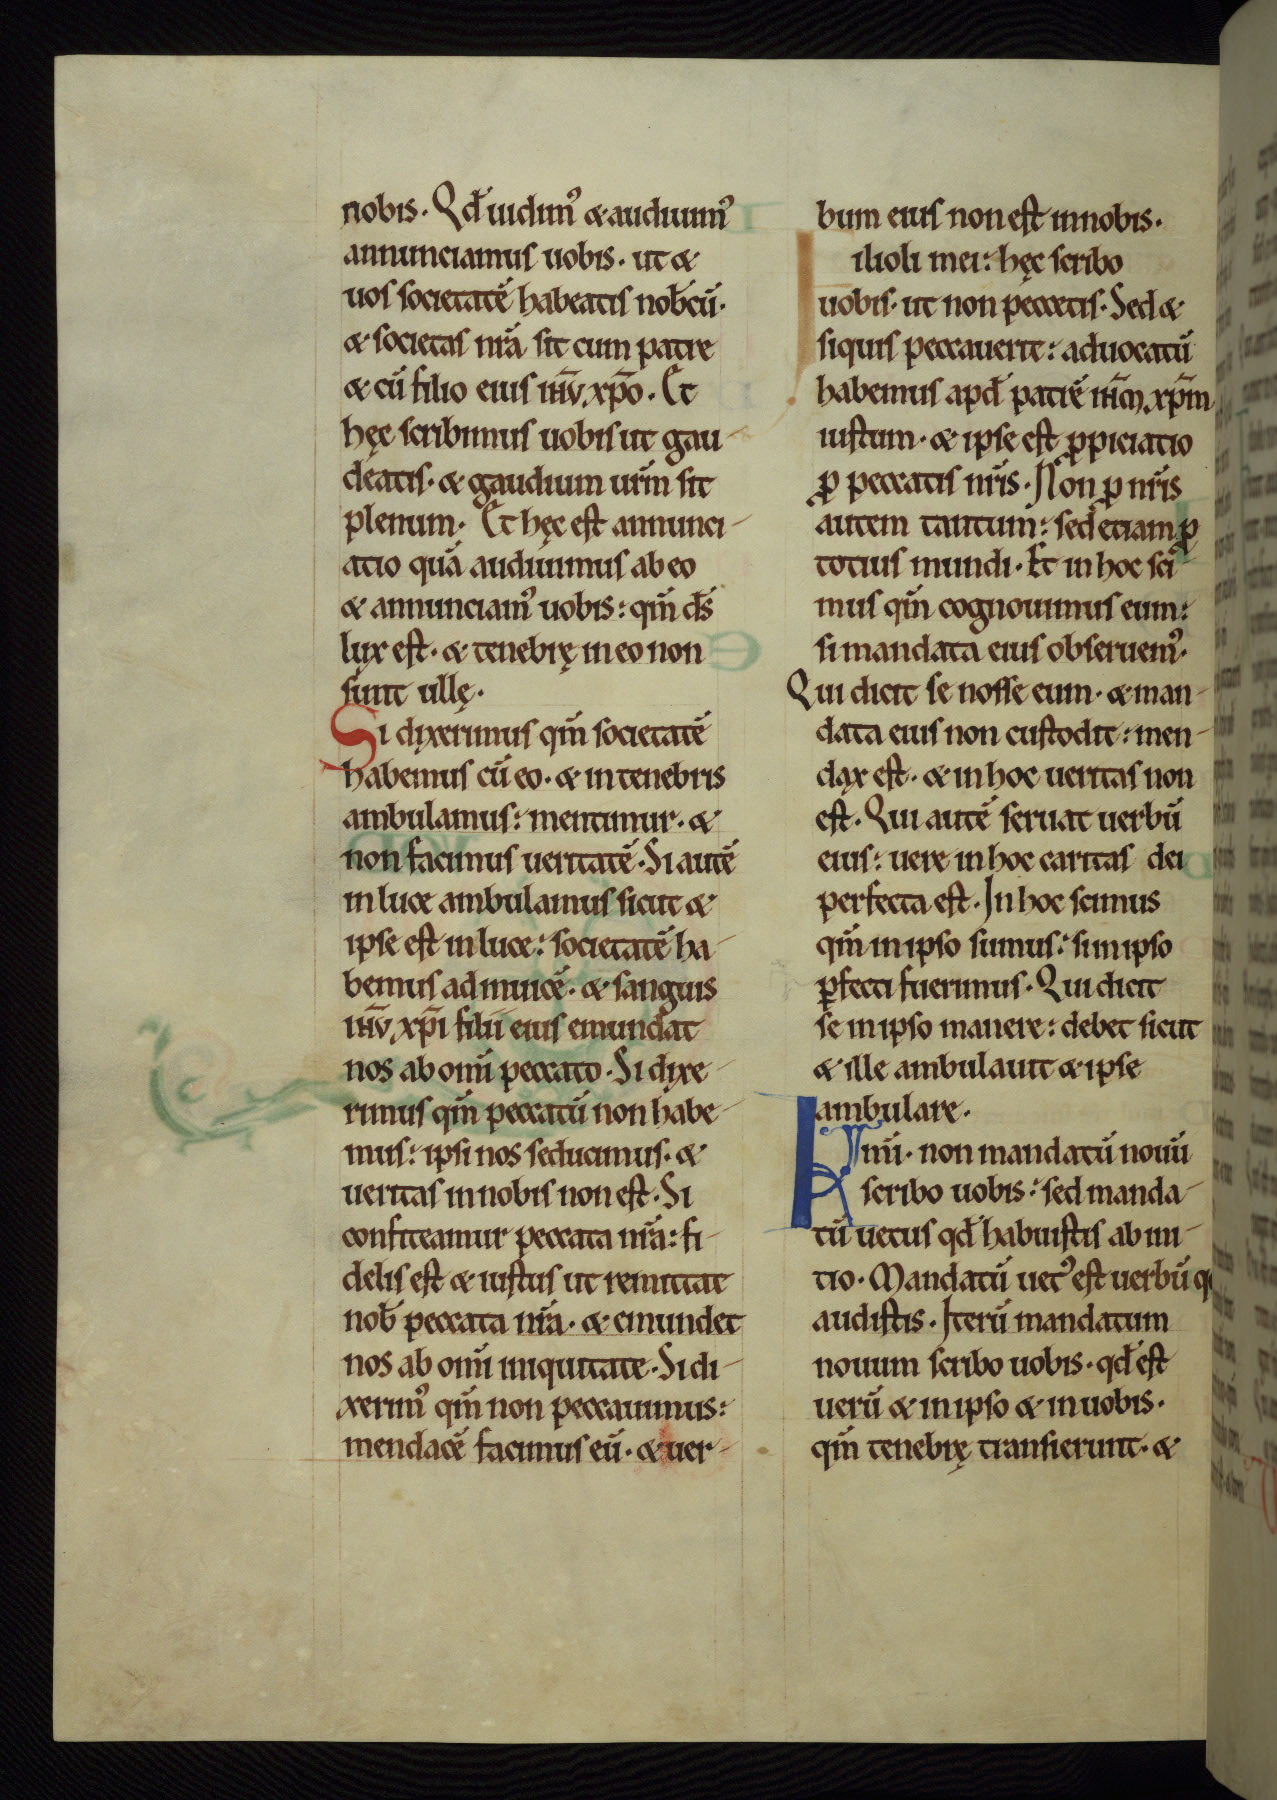 nobis. Qd̄ uidim᾽ & audiuim᾽
annunciamus uobis. ut &
uos societatē habeatis nob̄cū.
& societas nr̄a sit cum patre
& cū filio eius ih̄v xp̄o. Et
hęc scribimus uobis ut gau-
deatis. & gaudium ur̄m sit
plenum. Et hęc est annunci-
atio quā audiuimus ab eo
& annunciam᾽ uobis: qm̄ ds̄
lux est. & tenebrę in eo non
sunt ullę.
Si dixerimus qm̄ societatē
habemus cū eo. & in tenebris
ambulamus: mentimur. &
non facimus ueritatē. Si autē
in luce ambulamus sicut &
ipse est in luce: societatē ha-
bemus ad inuicē. & sanguis
ih̄v xp̄i filii eius emundat
nos ab om̄i peccato. Si dixe-
rimus qm̄ peccatū non habe-
mus: ipsi nos seducimus. &
ueritas in nobis non est. Si
confiteamur peccata nr̄a: fi-
delis est & iustus ut remittat
nob̄ peccata nr̄a. & emundet
nos ab om̄i iniquitate. Si di-
xerim᾽ qm̄ non peccauimus:
mendacē facimus eū. & uer-
bum eius non est in nobis.
Filioli mei: hęc scribo
uobis. ut non peccetis. Sed &
siquis peccauerit: aduocatū
habemus apd̄ patrē ih̄m xp̄m
iustum. & ipse est ꝓpiciatio
ꝓ peccatis nr̄is. Non ꝓ nr̄is
autem tantum: sed etiam ꝓ
totius mundi. Et in hoc sci
mus qm̄ cognouimus eum:
si mandata eius obseruem᾽.
Qui dicit se nosse eum. & man-
data eius non custodit: men-
dax est. & in hoc ueritas non
est. Qui autē seruat uerbū
eius: uere in hoc caritas dei
perfecta est. In hoc scimus
qm̄ in ipso sumus: si in ipso
ꝑfecti fuerimus. Qui dicit
se in ipso manere: debet sicut
& ille ambulauit & ipse
ambulare.
Kr̄mi. non mandatū nouū
scribo uobis: sed manda-
tū uetus qd̄ habuistis ab ini-
tio. Mandatū uet᾽ est uerbū
audistis. Iterū mandatum
nouum scribo uobis. qd̄ est
uerū & in ipso & in uobis.
qm̄ tenebrę transierunt. &